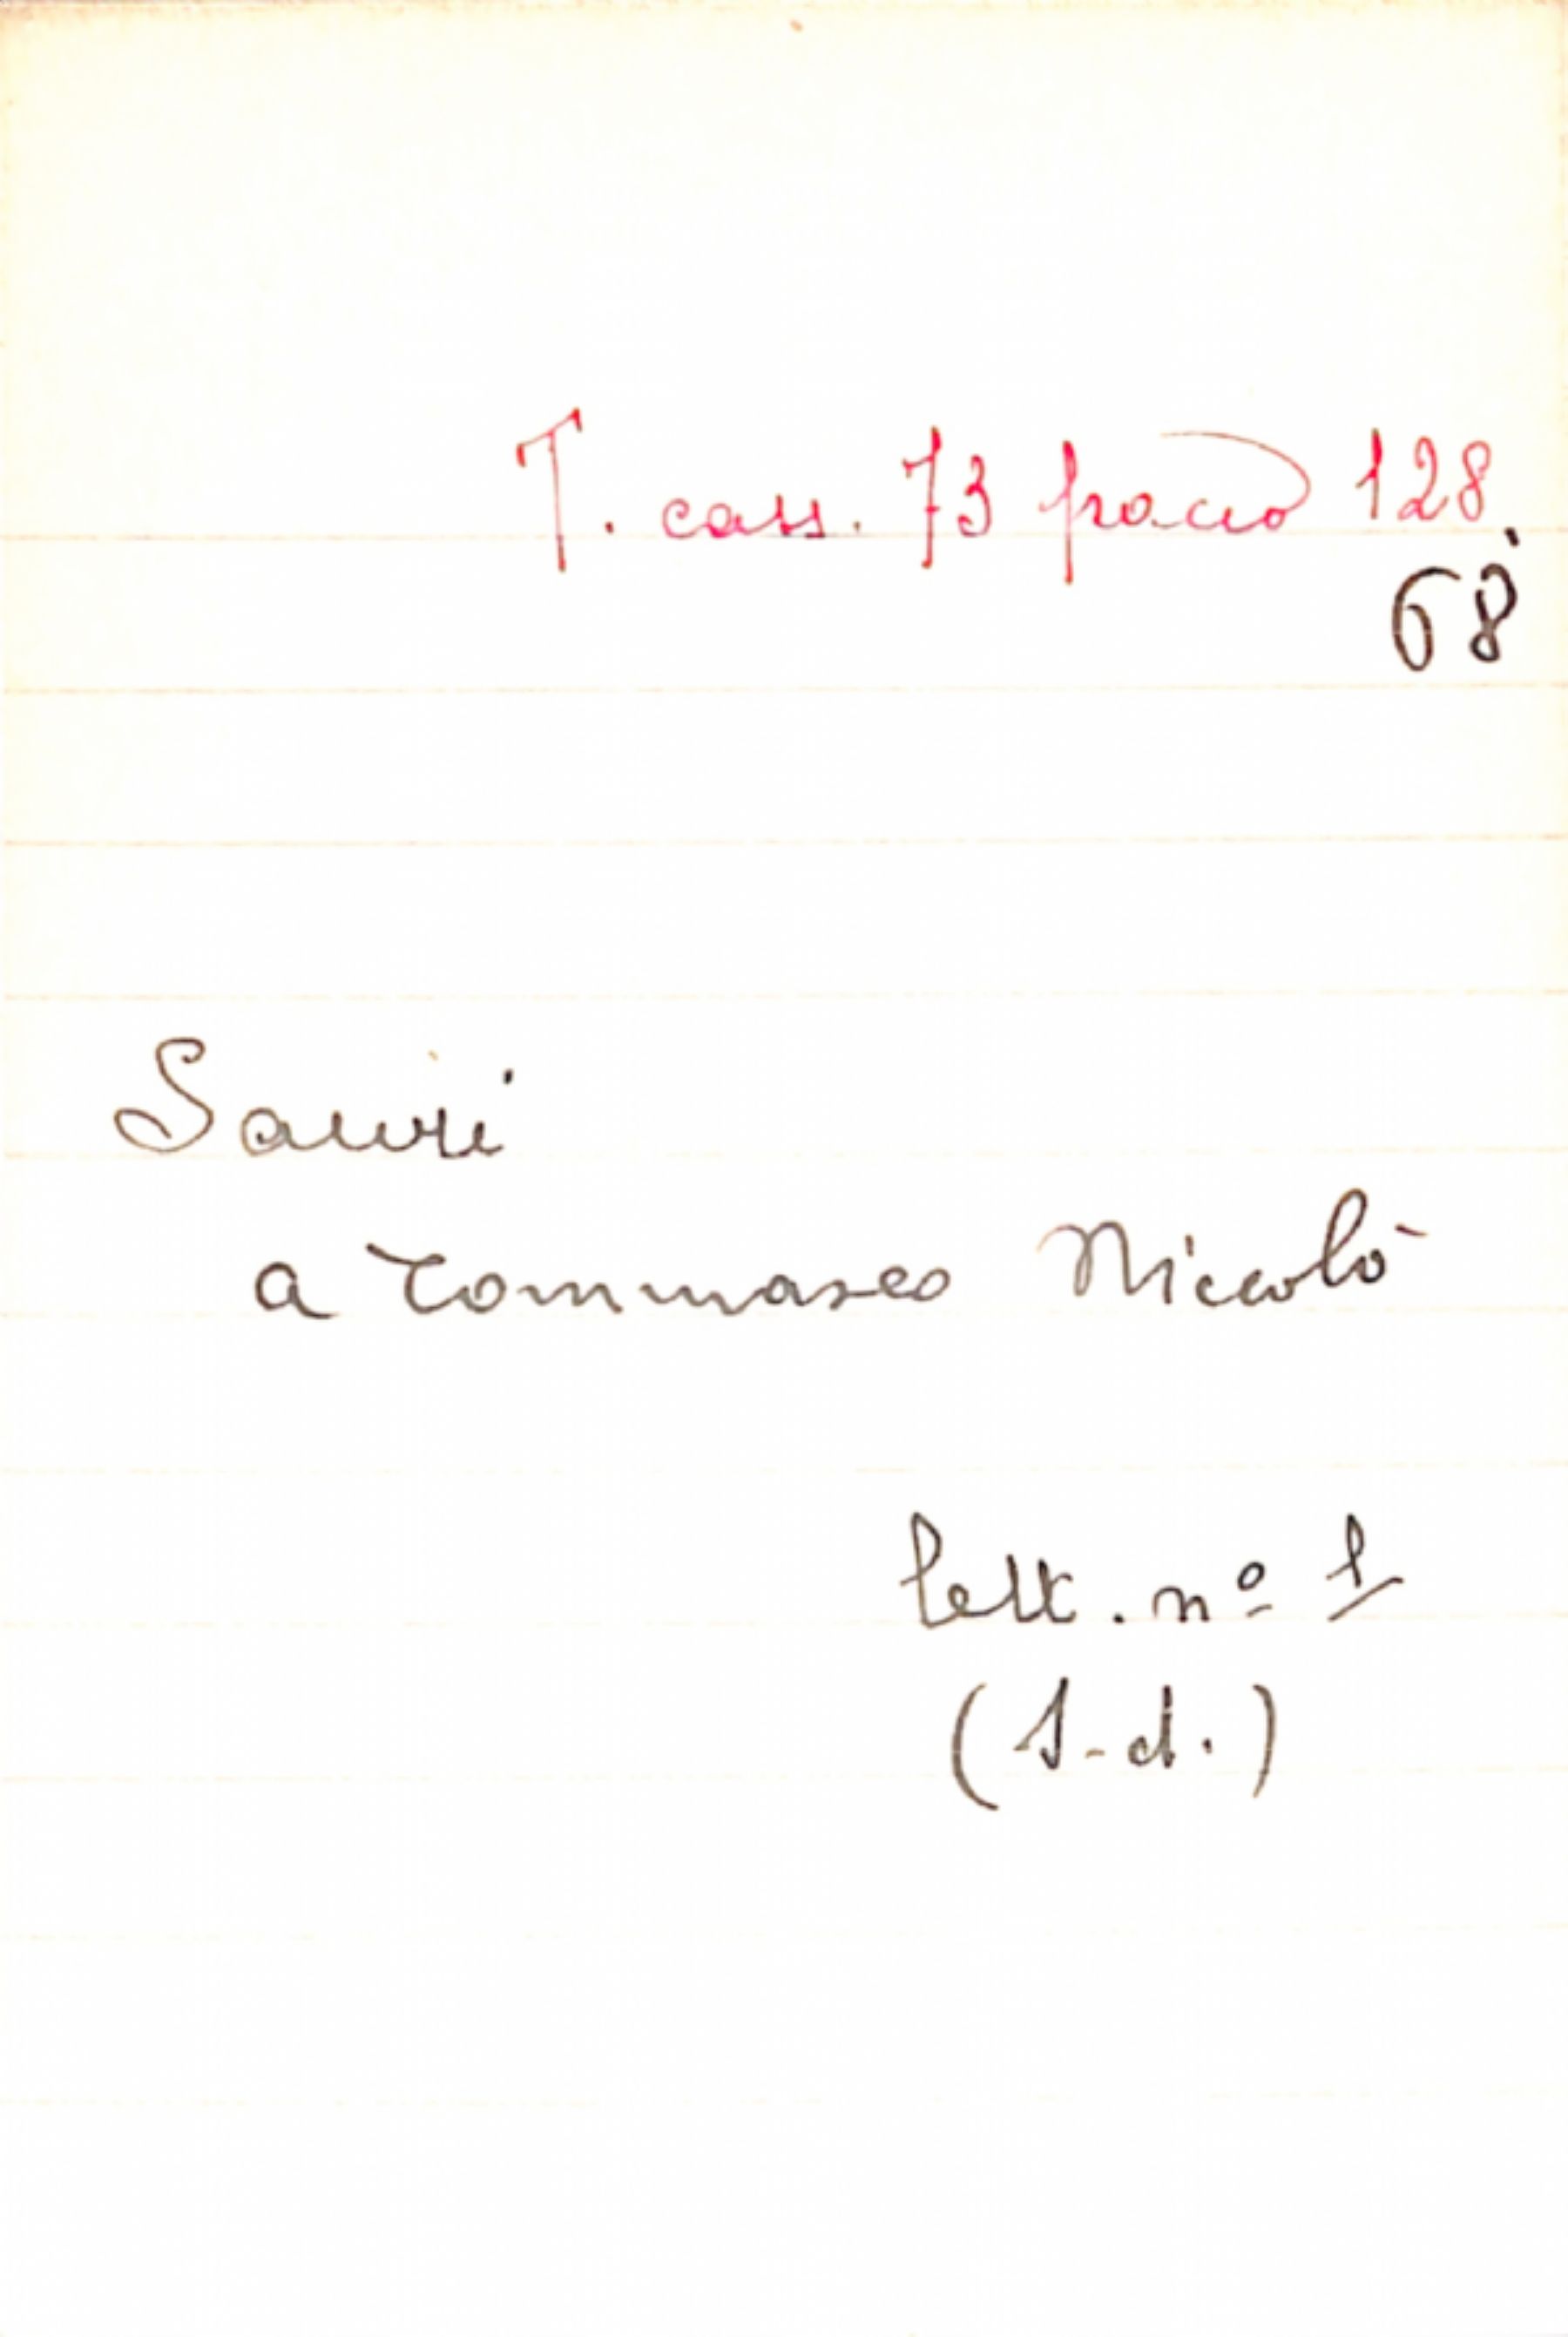 T. cass. 73 pacco 128.
68
Sauri
a Tommaseo Niccolò
lett. nº 1
(s.d.)